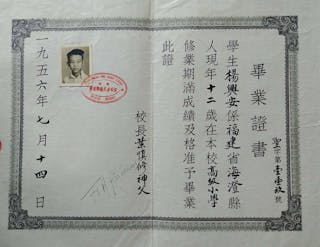 畢業證書
聖字第壹壹玖號
學生楊興安係福建省海澄縣
人現年十二歲在本校高級小學
修業期滿成績及格准予畢業
此證
校長葉慎修神父
一九五六年七月十四日